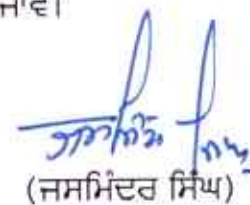 ਜਾਵੇ।
(ਜਸਮਿੰਦਰ ਸਿੰਘ)